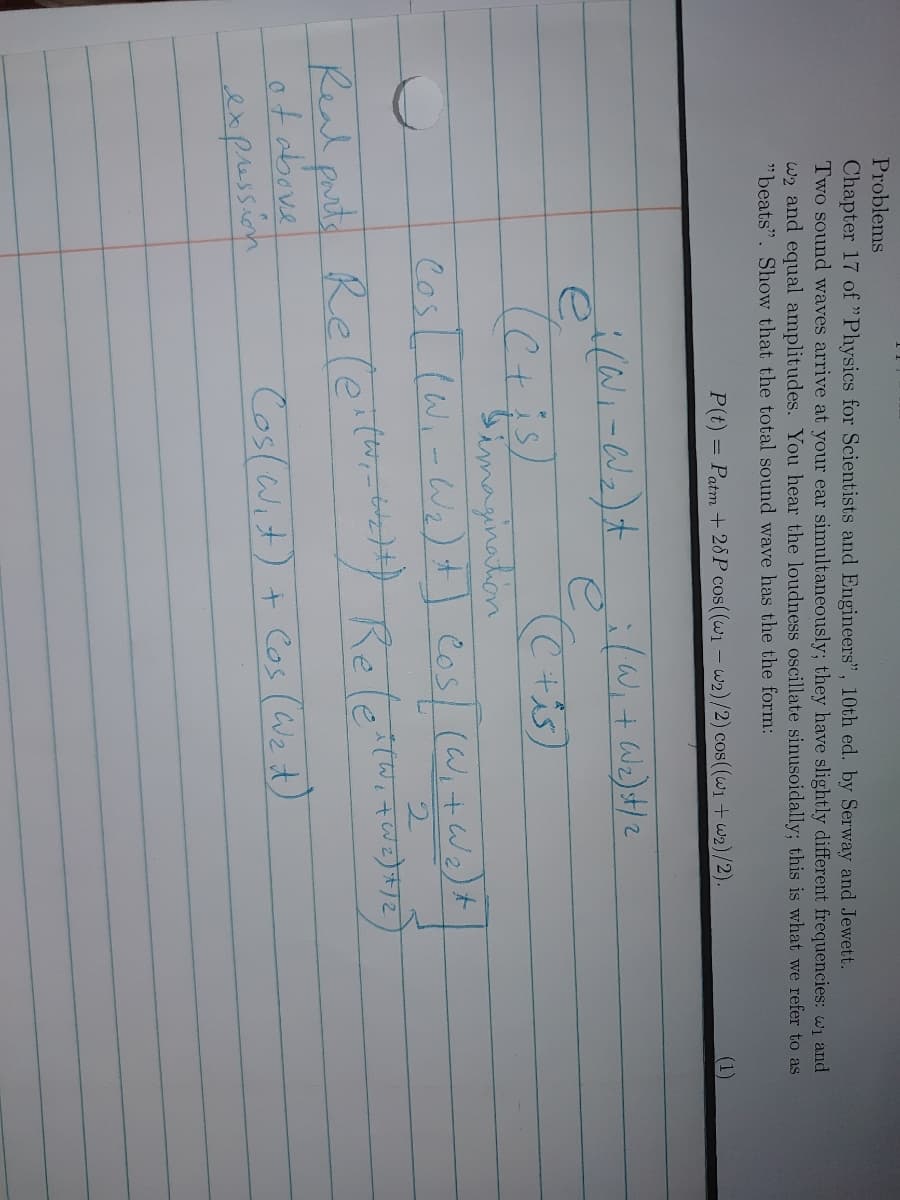 Problems
Chapter 17 of "Physics for Scientists and Engineers", 10th ed. by Serway and Jewett.
Two sound waves arrive at your ear simultaneously; they have slightly different frequencies: ω₁ and
ω₂ and equal amplitudes. You hear the loudness oscillate sinusoidally; this is what we refer to as
"beats". Show that the total sound wave has the the form:
P(t) = Patm + 2δP cos((ω₁ − ω₂)/2) cos((ω₁ + ω₂)/2). (1)
e^i(W₁-W₂)t e^i(W₁+W₂)t/2
(C+is) (C+is)
imagination
Cos[(W₁-W₂)t] Cos[(W₁+W₂)t/2]
Real parts Re(e^i(W₁-W₂)t) Re(e^i(W₁+W₂)t/2)
of above Cos(W₁t) + Cos(W₂t)
expression